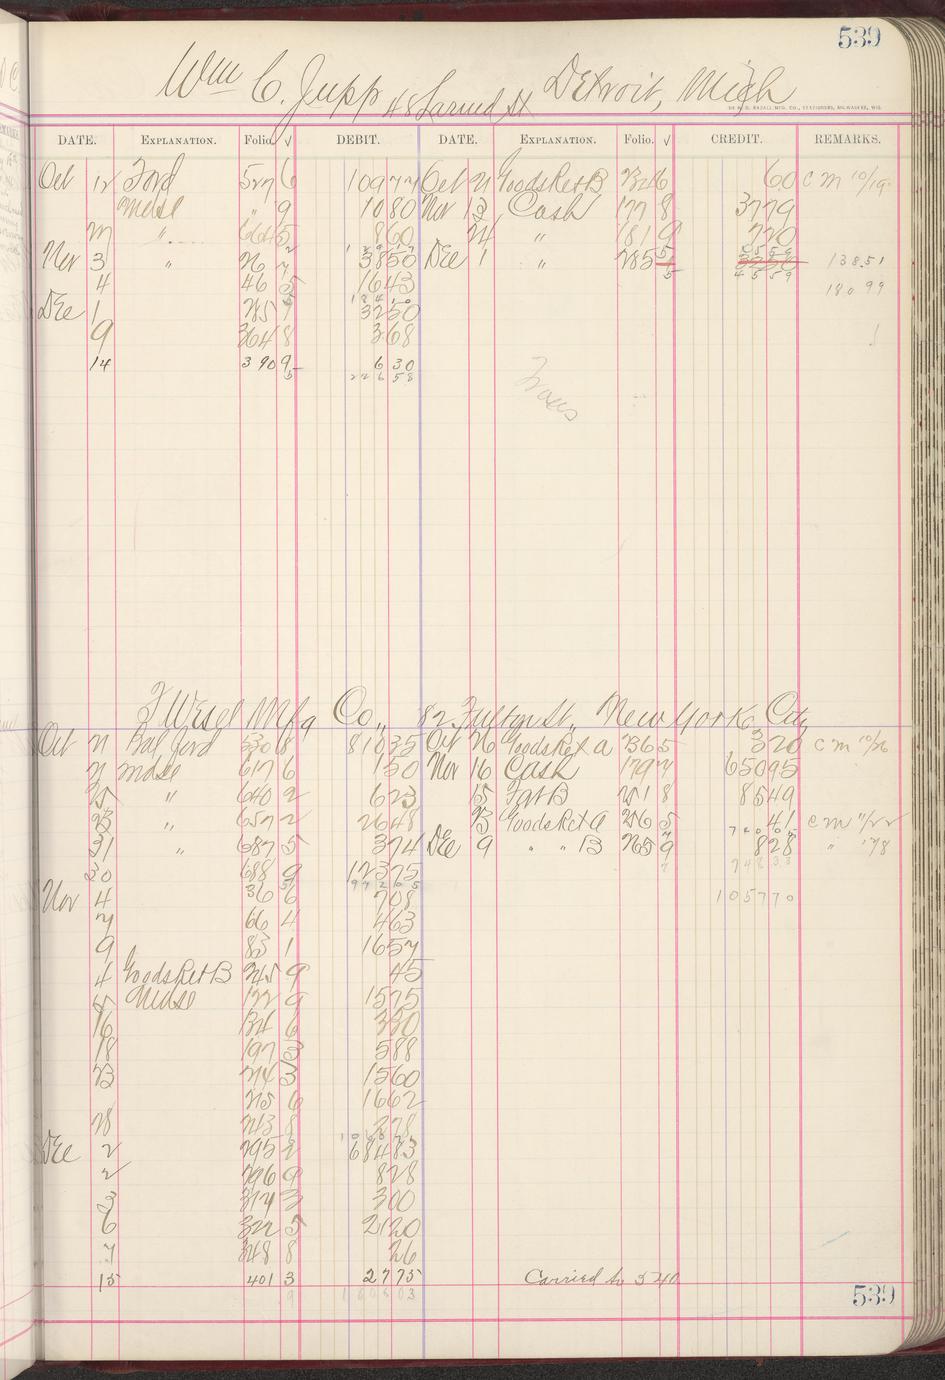 539
Wm C. Jupp 48 Larned St Detroit, Mich
DATE. EXPLANATION. Folio. √ DEBIT. DATE. EXPLANATION. Folio. √ CREDIT. REMARKS.
Oct 12 Ford 527 6 109 77 Oct 21 Goods Ret B 60 c m 10/19
Mdse " 9 10 80 Nov 13 Cash 177 8 37 79
" 664 5 8 60 24 " 181 9 7 20
Nov 3 " 26 7 38 50 Dec 1 " 285 138.51
4 46 5 16 43 45 59 180 99
Dec 1 285 32 50
9 364 8 3 68
14 390 9 6 30
226 58
Trans
F Wesel Mfg Co., 82 Fulton St, New York City
Oct 21 Bal Ford 530 8 810 35 Oct 26 Goods Ret a 365 3 20 c m 10/26
21 Mdse 617 6 1 50 Nov 16 Cash 179 7 650 95
25 " 640 2 6 23 15 B 8 85 49
23 " 657 2 26 48 23 Goods Ret a 256 5 41 c m 11/22
31 " 687 5 3 74 Dec 9 " " B 265 9 8 28 "
30 688 9 123 75
Nov 4 36 6 7 08 1057 70
7 66 4 4 63
9 83 1 16 57
4 Goods Ret B 245 9 45
15 Mdse 122 9 15 75
16 134 6 3 30
18 197 3 5 88
23 214 3 15 60
215 6 16 62
28 243 8 2 78
Dec 2 295 2 684 83
2 296 9 8 28
3 317 3 3 00
6 322 5 21 20
7 348 8 26
15 401 3 27 75 Carried to 540
539